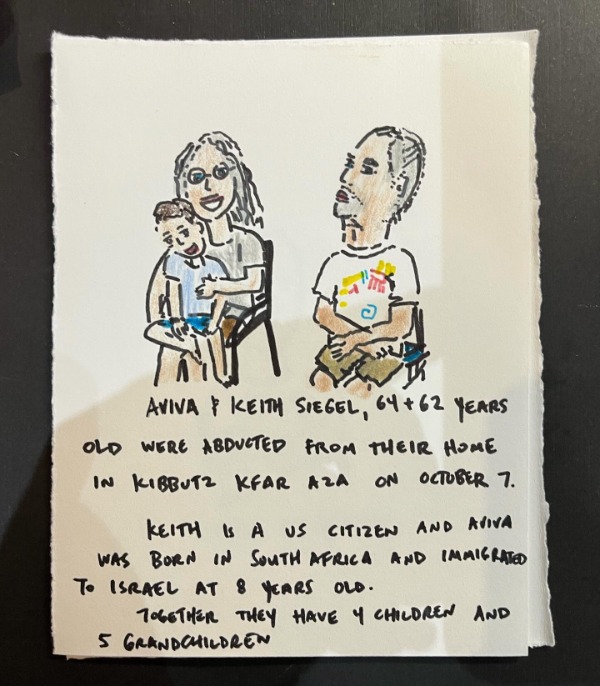 AVIVA & KEITH SIEGEL, 64 + 62 YEARS
OLD WERE ABDUCTED FROM THEIR HOME
IN KIBBUTZ KFAR AZA ON OCTOBER 7.
KEITH IS A US CITIZEN AND AVIVA
WAS BORN IN SOUTH AFRICA AND IMMIGRATED
TO ISRAEL AT 8 YEARS OLD.
TOGETHER THEY HAVE 4 CHILDREN AND
5 GRANDCHILDREN